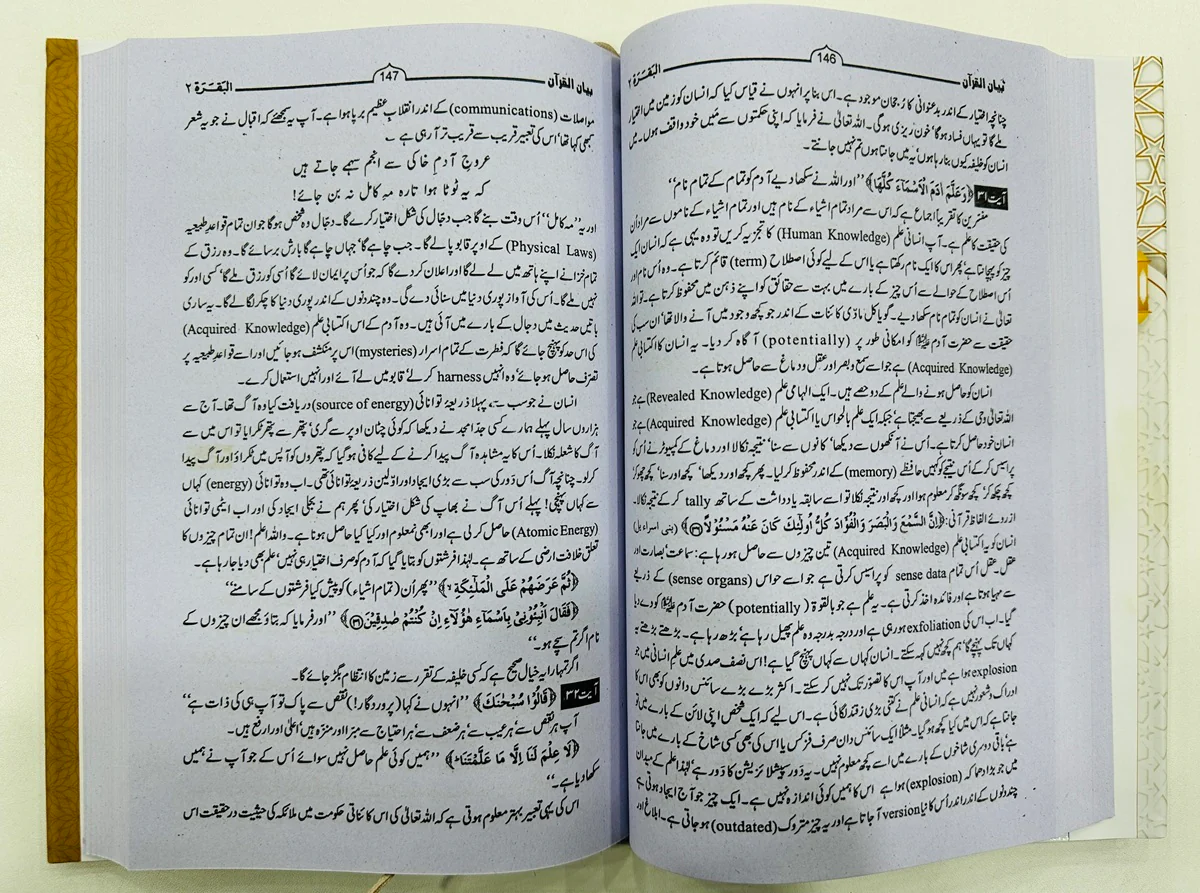 بیان القرآن 146 البَقَرَة ۲
چنانچہ اختیار کے اندر بدعنوانی کا رُجحان موجود ہے۔ اس بنا پر انہوں نے قیاس کیا کہ انسان کو زمین میں اختیار
ملے گا تو یہاں فساد ہوگا' خون ریزی ہوگی۔ اللہ تعالیٰ نے فرمایا کہ اپنی حکمتوں سے مَیں خود واقف ہوں۔ میں
انسان کو خلیفہ کیوں بنا رہا ہوں' یہ میں جانتا ہوں تم نہیں جانتے۔
آیت ۳۱ ﴿وَعَلَّمَ اٰدَمَ الْاَسْمَآءَ كُلَّهَا﴾ ''اور اللہ نے سکھا دیے آدم کو تمام کے تمام نام''
مفسرین کا تقریباً اجماع ہے کہ اس سے مراد تمام اشیاء کے نام ہیں اور تمام اشیاء کے ناموں سے مراد ان
کی حقیقت کا علم ہے۔ آپ انسانی علم (Human Knowledge) کا تجزیہ کریں تو وہ یہی ہے کہ انسان ایک
چیز کو پہچانتا ہے' پھر اس کا ایک نام رکھتا ہے یا اس کے لیے کوئی اصطلاح (term) قائم کرتا ہے۔ وہ اُس نام اور
اُس اصطلاح کے حوالے سے اُس چیز کے بارے میں بہت سے حقائق کو اپنے ذہن میں محفوظ کرتا ہے۔ تو اللہ
تعالیٰ نے انسان کو تمام نام سکھا دیے۔ گویا کل مادّی کائنات کے اندر جو کچھ وجود میں آنے والا تھا' ان سب کی
حقیقت سے حضرت آدم علیہ السلام کو امکانی طور پر (potentially) آگاہ کر دیا۔ یہ انسان کا اکتسابی علم
(Acquired Knowledge) ہے جو اسے سمع و بصر اور عقل و دماغ سے حاصل ہوتا ہے۔
انسان کو حاصل ہونے والے علم کے دو حصے ہیں۔ ایک الہامی علم (Revealed Knowledge) ہے جو
اللہ تعالیٰ وحی کے ذریعے سے بھیجتا ہے' جبکہ ایک علم بالحواس یا اکتسابی علم (Acquired Knowledge) ہے جو
انسان خود حاصل کرتا ہے۔ اُس نے آنکھوں سے دیکھا' کانوں سے سنا' نتیجہ نکالا اور دماغ کے کمپیوٹر نے اُس کو
پراسیس کر کے اُس نتیجے کو کہیں حافظے (memory) کے اندر محفوظ کر لیا۔ پھر کچھ اور دیکھا' کچھ اور سنا' کچھ چھو کر'
کچھ چکھ کر' کچھ سونگھ کر معلوم ہوا اور کچھ اور نتیجہ نکلا تو اسے سابقہ یادداشت کے ساتھ tally کر کے نتیجہ نکالا۔
ازروئے الفاظِ قرآنی: ﴿اِنَّ السَّمْعَ وَالْبَصَرَ وَالْفُؤَادَ كُلُّ اُولٰٓئِكَ كَانَ عَنْهُ مَسْئُوْلًا ﴿۳۶﴾﴾ (بنی اسراءیل)
انسان کو یہ اکتسابی علم (Acquired Knowledge) تین چیزوں سے حاصل ہو رہا ہے: سماعت' بصارت اور
عقل۔ عقل اُس تمام sense data کو پراسیس کرتی ہے جو اسے حواس (sense organs) کے ذریعے
سے مہیا ہوتا ہے اور فائدہ اخذ کرتی ہے۔ یہ علم ہے جو بالقوۃ (potentially) حضرت آدم علیہ السلام کو دے دیا
گیا۔ اب اس کی exfoliation ہو رہی ہے اور درجہ بدرجہ وہ علم پھیل رہا ہے' بڑھ رہا ہے۔ بڑھتے بڑھتے یہ
کہاں تک پہنچے گا' ہم کچھ نہیں کہہ سکتے۔ انسان کہاں سے کہاں پہنچ گیا ہے! اس نصف صدی میں علم انسانی میں جو
explosion ہوا ہے میں اور آپ اس کا تصور تک نہیں کر سکتے۔ اکثر بڑے بڑے سائنس دانوں کو بھی اس کا
ادراک و شعور نہیں ہے کہ انسانی علم نے کتنی بڑی زقند لگائی ہے۔ اس لیے کہ ایک شخص اپنی لائن کے بارے میں تو
جانتا ہے کہ اس میں کیا کچھ ہو گیا۔ مثلاً ایک سائنس دان صرف فزکس یا اس کی بھی کسی شاخ کے بارے میں جانتا
ہے' باقی دوسری شاخوں کے بارے میں اسے کچھ معلوم نہیں۔ یہ دَور سپیشلائزیشن کا دَور ہے' لہٰذا علم کے میدان
میں جو بڑا دھماکہ (explosion) ہوا ہے اس کا ہمیں کوئی اندازہ نہیں ہے۔ ایک چیز جو آج ایجاد ہوتی ہے
چند دنوں کے اندر اندر اُس کا نیا version آ جاتا ہے اور یہ چیز متروک (outdated) ہو جاتی ہے۔ ابلاغ اور
بیان القرآن 147 البَقَرَة ۲
مواصلات (communications) کے اندر انقلابِ عظیم برپا ہوا ہے۔ آپ یہ سمجھئے کہ اقبال نے جو یہ شعر
کبھی کہا تھا' اُس کی تعبیر قریب سے قریب تر آ رہی ہے۔
عروجِ آدمِ خاکی سے انجم سہمے جاتے ہیں
کہ یہ ٹوٹا ہوا تارہ مہِ کامل نہ بن جائے!
اور یہ ''مہ کامل'' اُس وقت بنے گا جب دجّال کی شکل اختیار کرے گا۔ دجّال وہ شخص ہوگا جو ان تمام قواعدِ طبیعیہ
(Physical Laws) کے اوپر قابو پا لے گا۔ جب چاہے گا' جہاں چاہے گا بارش برسائے گا۔ وہ رزق کے
تمام خزانے اپنے ہاتھ میں لے لے گا اور اعلان کر دے گا کہ جو اُس پر ایمان لائے گا اُسی کو رزق ملے گا' کسی اور کو
نہیں ملے گا۔ اُس کی آواز پوری دنیا میں سنائی دے گی۔ وہ چند دنوں کے اندر پوری دنیا کا چکر لگا لے گا۔ یہ ساری
باتیں حدیث میں دجال کے بارے میں آئی ہیں۔ وہ آدم کے اس اکتسابی علم (Acquired Knowledge)
کی اس حد کو پہنچ جائے گا کہ فطرت کے تمام اسرار (mysteries) اس پر منکشف ہو جائیں اور اسے قواعدِ طبیعیہ پر
تصرف حاصل ہو جائے' وہ انہیں harness کر لے' قابو میں لے آئے اور انہیں استعمال کرے۔
انسان نے جو سب سے پہلا ذریعۂ توانائی (source of energy) دریافت کیا وہ آگ تھا۔ آج سے
ہزاروں سال پہلے ہمارے کسی جدّ امجد نے دیکھا کہ کوئی چٹان اوپر سے گری' پتھر سے پتھر ٹکرایا تو اس میں سے
آگ کا شعلہ نکلا۔ اُس کا یہ مشاہدہ آگ پیدا کرنے کے لیے کافی ہو گیا کہ پتھروں کو آپس میں ٹکراؤ اور آگ پیدا
کر لو۔ چنانچہ آگ اُس دَور کی سب سے بڑی ایجاد اور اوّلین ذریعۂ توانائی تھی۔ اب وہ توانائی (energy) کہاں
سے کہاں پہنچی! پہلے اُس آگ نے بھاپ کی شکل اختیار کی' پھر ہم نے بجلی ایجاد کی اور اب ایٹمی توانائی
(Atomic Energy) حاصل کر لی ہے اور ابھی نمعلوم اور کیا کیا حاصل ہونا ہے۔ واللہ اعلم! ان تمام چیزوں کا
تعلق خلافتِ ارضی کے ساتھ ہے۔ لہٰذا فرشتوں کو بتایا گیا کہ آدم کو صرف اختیار ہی نہیں' علم بھی دیا جا رہا ہے۔
﴿ثُمَّ عَرَضَهُمْ عَلَى الْمَلٰٓئِكَةِ﴾ ''پھر اُن (تمام اشیاء) کو پیش کیا فرشتوں کے سامنے''
﴿فَقَالَ اَنْۢبِئُوْنِیْ بِاَسْمَآءِ هٰٓؤُلَآءِ اِنْ كُنْتُمْ صٰدِقِیْنَ ﴿۳۱﴾﴾ ''اور فرمایا کہ بتاؤ مجھے ان چیزوں کے
نام اگر تم سچے ہو۔''
اگر تمہارا یہ خیال صحیح ہے کہ کسی خلیفہ کے تقرر سے زمین کا انتظام بگڑ جائے گا۔
آیت ۳۲ ﴿قَالُوْا سُبْحٰنَكَ﴾ ''انہوں نے کہا (پروردگار!) نقص سے پاک تو آپ ہی کی ذات ہے''
آپ ہر نقص سے' ہر عیب سے' ہر ضعف سے' ہر احتیاج سے مبرا اور منزہ ہیں' اعلیٰ اور ارفع ہیں۔
﴿لَا عِلْمَ لَنَآ اِلَّا مَا عَلَّمْتَنَا﴾ ''ہمیں کوئی علم حاصل نہیں سوائے اُس کے جو آپ نے ہمیں
سکھا دیا ہے۔''
اس کی یہی تعبیر بہتر معلوم ہوتی ہے کہ اللہ تعالیٰ کی اس کائناتی حکومت میں ملائکہ کی حیثیت درحقیقت اس